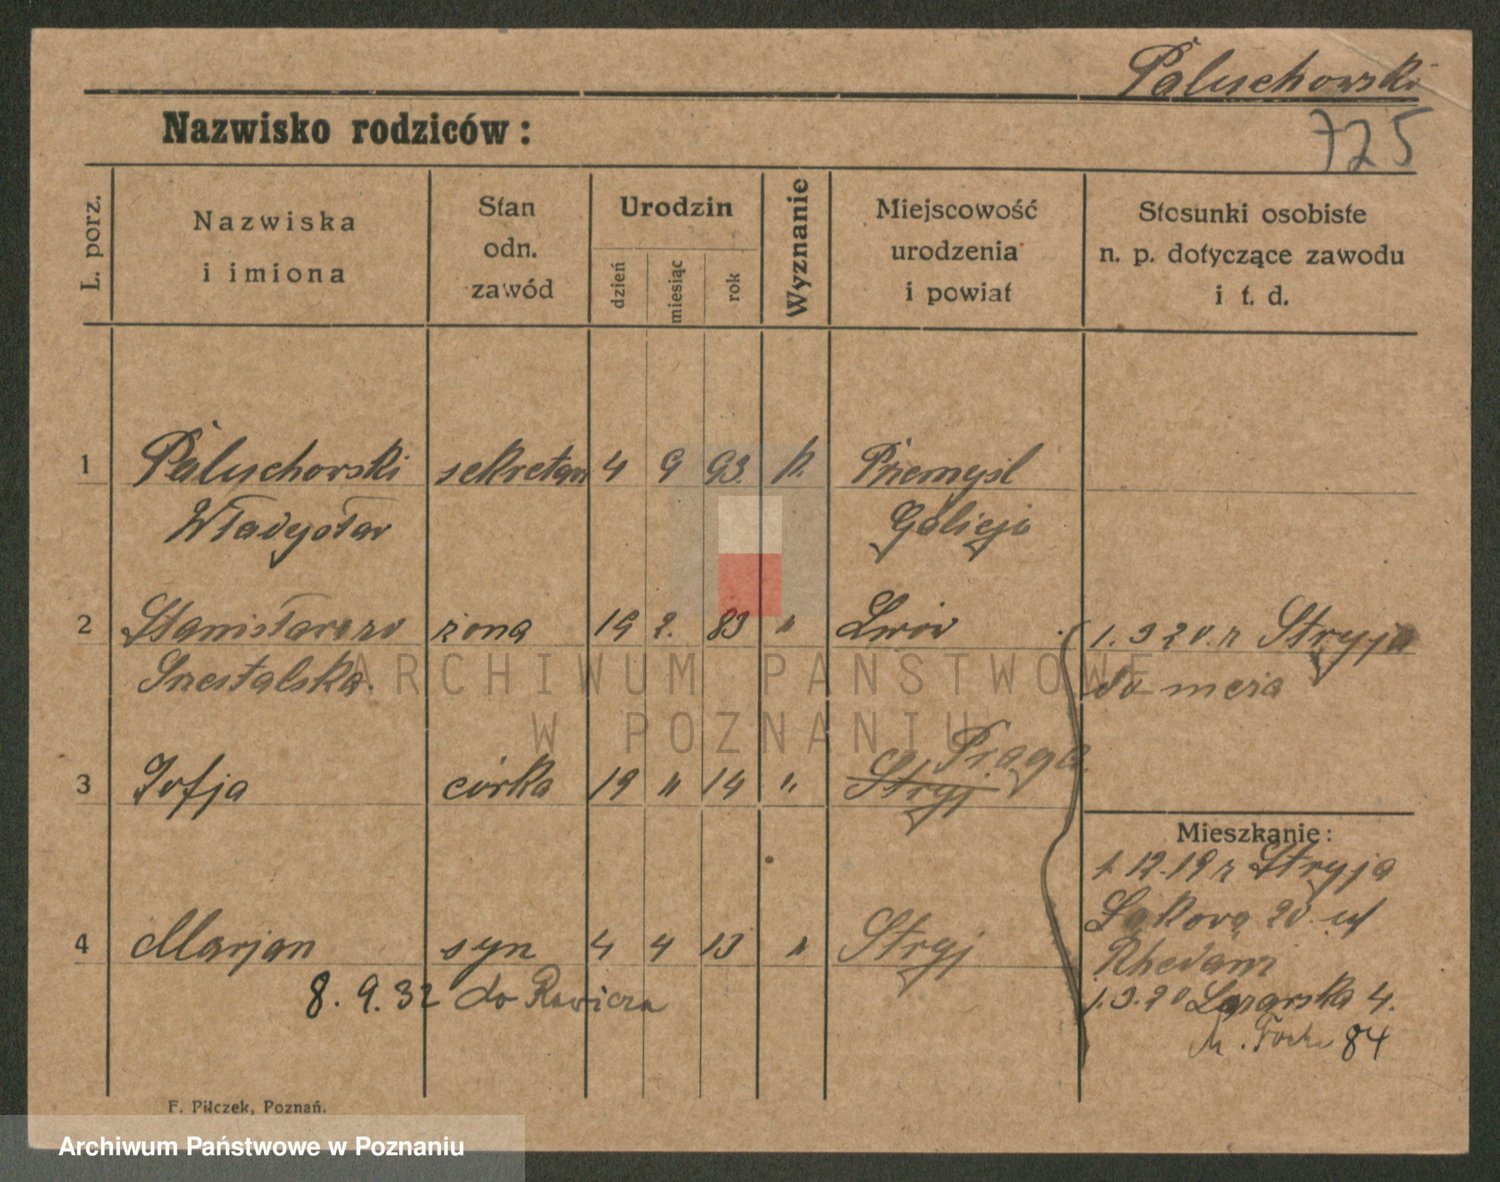 Paluchowski
725
Nazwisko rodziców:
L. porz.
Nazwiska
i imiona
Stan
odn.
zawód
Urodzin
dzień
miesiąc
rok
Wyznanie
Miejscowość
urodzenia
i powiat
Stosunki osobiste
n. p. dotyczące zawodu
i t. d.
1 Paluchowski sekretarz 4 9 93. k. Przemysl
Władysław Galicja
2 żona 19 2. 83 " Lwów 1.3 20. z Stryja
do męża
3 Zofja córka 19 " 14 " Stryj Praga
Mieszkanie:
1.12.19 z Stryja
Łąkowa 20
4 Marjan syn 4 4 13 " Stryj
8.9.32 do Rawicza
1.3.20 Łazarska 4.
M. Focha 84
F. Pilczek, Poznań.
ARCHIWUM PAŃSTWOWE
W POZNANIU
Archiwum Państwowe w Poznaniu